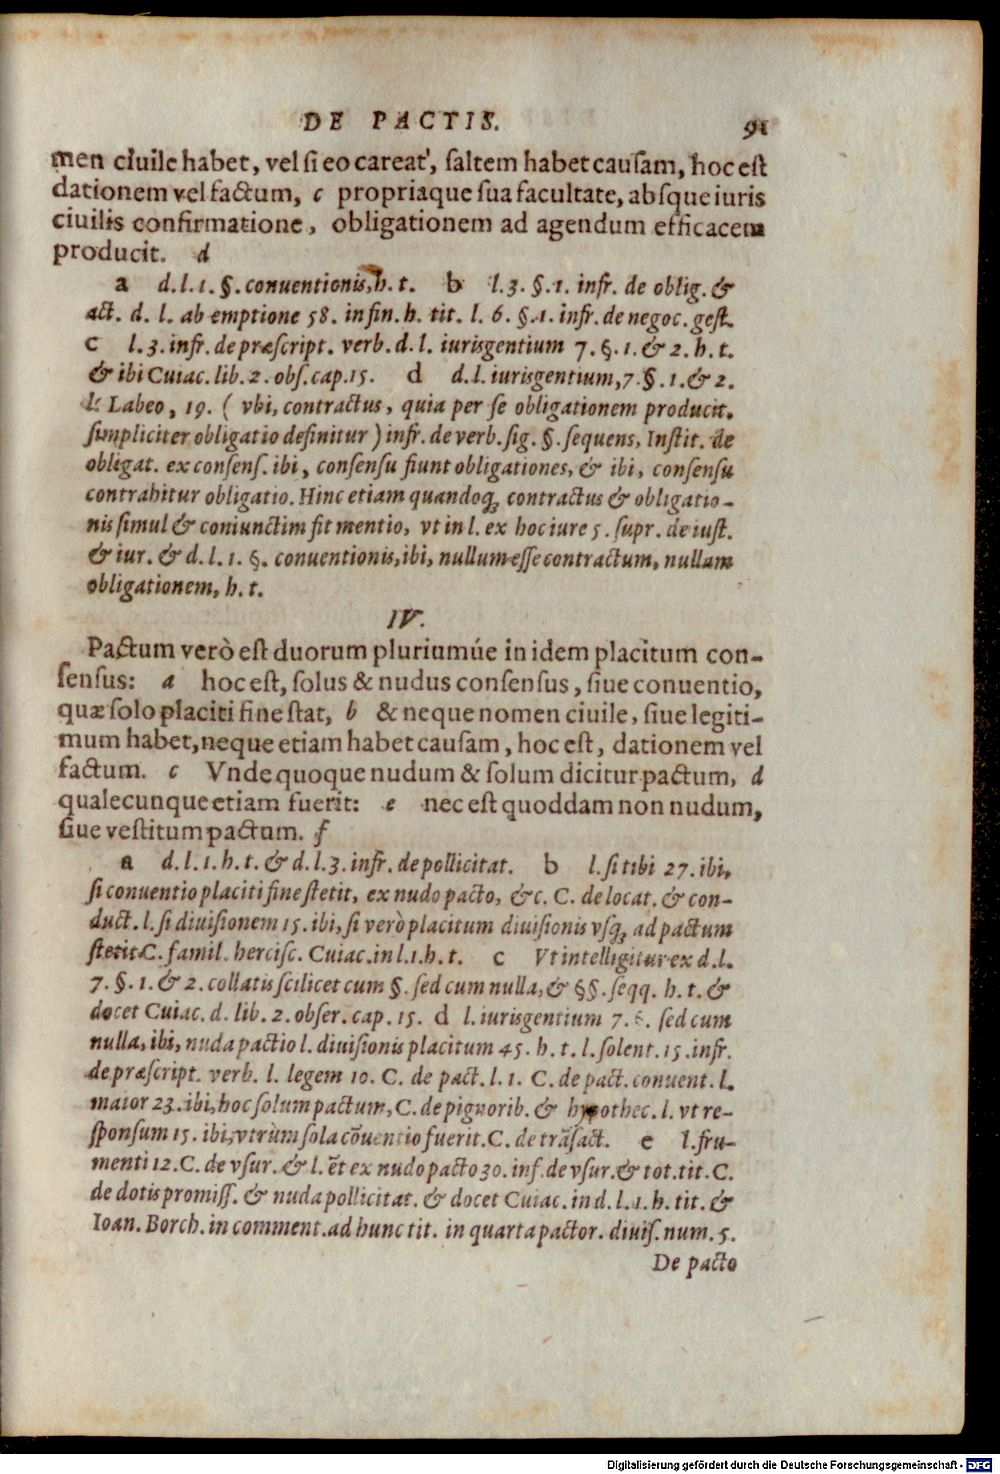 DE PACTIS. 91
men ciuile habet, vel si eo careat, saltem habet causam, hoc est
dationem vel factum, c propriaque sua facultate, absque iuris
ciuilis confirmatione, obligationem ad agendum efficacem
producit. d
a d. l. 1. §. conuentionis, h. t. b l. 3. §. 1. infr. de oblig. &
act. d. l. ab emptione 58. in fin. h. tit. l. 6. §. 1. infr. de negoc. gest.
c l. 3. infr. de præscript. verb. d. l. iurisgentium 7. §. 1. & 2. h. t.
& ibi Cuiac. lib. 2. obs. cap. 15. d d. l. iurisgentium, 7. §. 1. & 2.
l. Labeo, 19. ( vbi, contractus, quia per se obligationem producit,
simpliciter obligatio definitur ) infr. de verb. sig. §. sequens, Instit. de
obligat. ex consens. ibi, consensu fiunt obligationes, & ibi, consensu
contrahitur obligatio. Hinc etiam quandoq; contractus & obligatio-
nis simul & coniunctim fit mentio, vt in l. ex hoc iure 5. supr. de iust.
& iur. & d. l. 1. §. conuentionis, ibi, nullum esse contractum, nullam
obligationem, h. t.
IV.
Pactum verò est duorum pluriumúe in idem placitum con-
sensus: a hoc est, solus & nudus consensus, siue conuentio,
quæ solo placiti fine stat, b & neque nomen ciuile, siue legiti-
mum habet, neque etiam habet causam, hoc est, dationem vel
factum. c Vnde quoque nudum & solum dicitur pactum, d
qualecunque etiam fuerit: e nec est quoddam non nudum,
siue vestitum pactum. f
a d. l. 1. h. t. & d. l. 3. infr. de pollicitat. b l. si tibi 27. ibi,
si conuentio placiti fine stetit, ex nudo pacto, &c. C. de locat. & con-
duct. l. si diuisionem 15. ibi, si verò placitum diuisionis vsq; ad pactum
stetit C. famil. hercisc. Cuiac. in l. 1. h. t. c Vt intelligitur ex d. l.
7. §. 1. & 2. collatis scilicet cum §. sed cum nulla, & §§. seqq. h. t. &
docet Cuiac. d. lib. 2. obser. cap. 15. d l. iurisgentium 7. §. sed cum
nulla, ibi, nuda pactio l. diuisionis placitum 45. h. t. l. solent. 15. infr.
de præscript. verb. l. legem 10. C. de pact. l. 1. C. de pact. conuent. l.
maior 23. ibi, hoc solum pactum, C. de pignorib. & hypothec. l. vt re-
sponsum 15. ibi, vtrùm sola cōuentio fuerit. C. de trāsact. e l. fru-
menti 12. C. de vsur. & l. ēt ex nudo pacto 30. inf. de vsur. & tot. tit. C.
de dotis promiss. & nuda pollicitat. & docet Cuiac. in d. l. 1. h. tit. &
Ioan. Borch. in comment. ad hunc tit. in quarta pactor. diuis. num. 5.
De pacto
Digitalisierung gefördert durch die Deutsche Forschungsgemeinschaft - DFG